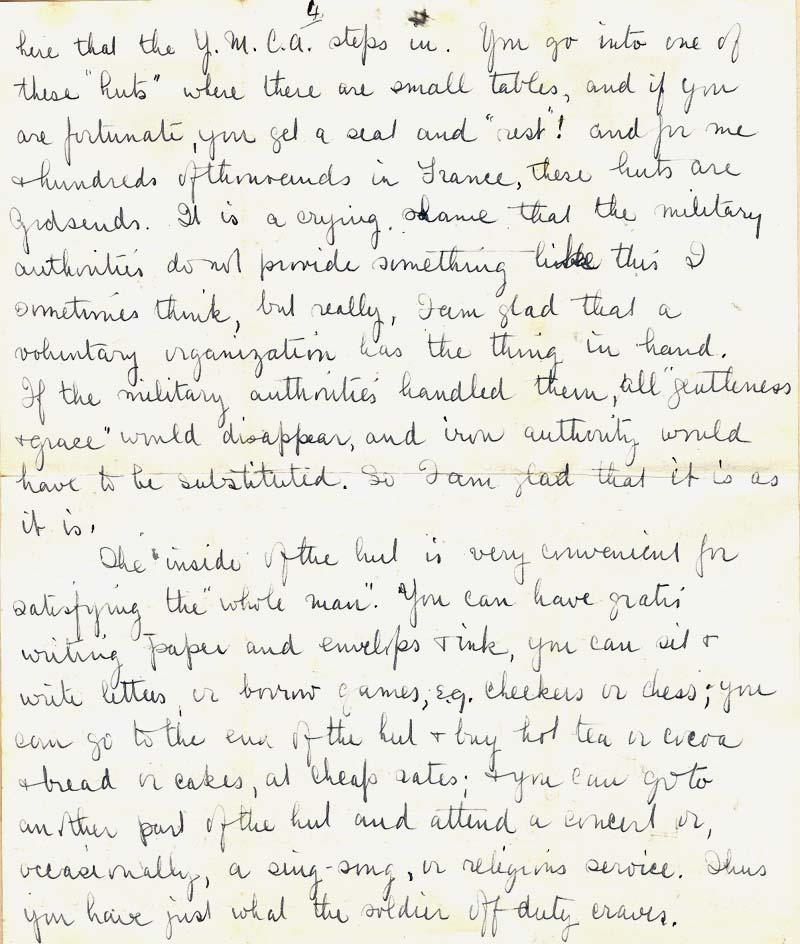 4
here that the Y.M.C.A. steps in. You go into one of
these "huts" where there are small tables, and if you
are fortunate, you get a seat and "rest"! and for me
& hundreds of thousands in France, these huts are
Godsends. It is a crying shame that the military
authorities do not provide something like this I
sometimes think, but really, I am glad that a
voluntary organization has the thing in hand.
If the military authorities handled them, all "gentleness
& grace" would disappear, and iron authority would
have to be substituted. So I am glad that it is as
it is.
The inside of the hut is very convenient for
satisfying the "whole man". You can have gratis
writing paper and envelops & ink, you can sit &
write letters, or borrow games, e.g. checkers or chess; you
can go to the end of the hut & buy hot tea or cocoa
& bread or cakes, at cheap rates; & you can go to
another part of the hut and attend a concert or,
occasionally, a sing-song, or religious service. Thus
you have just what the soldier off duty craves.